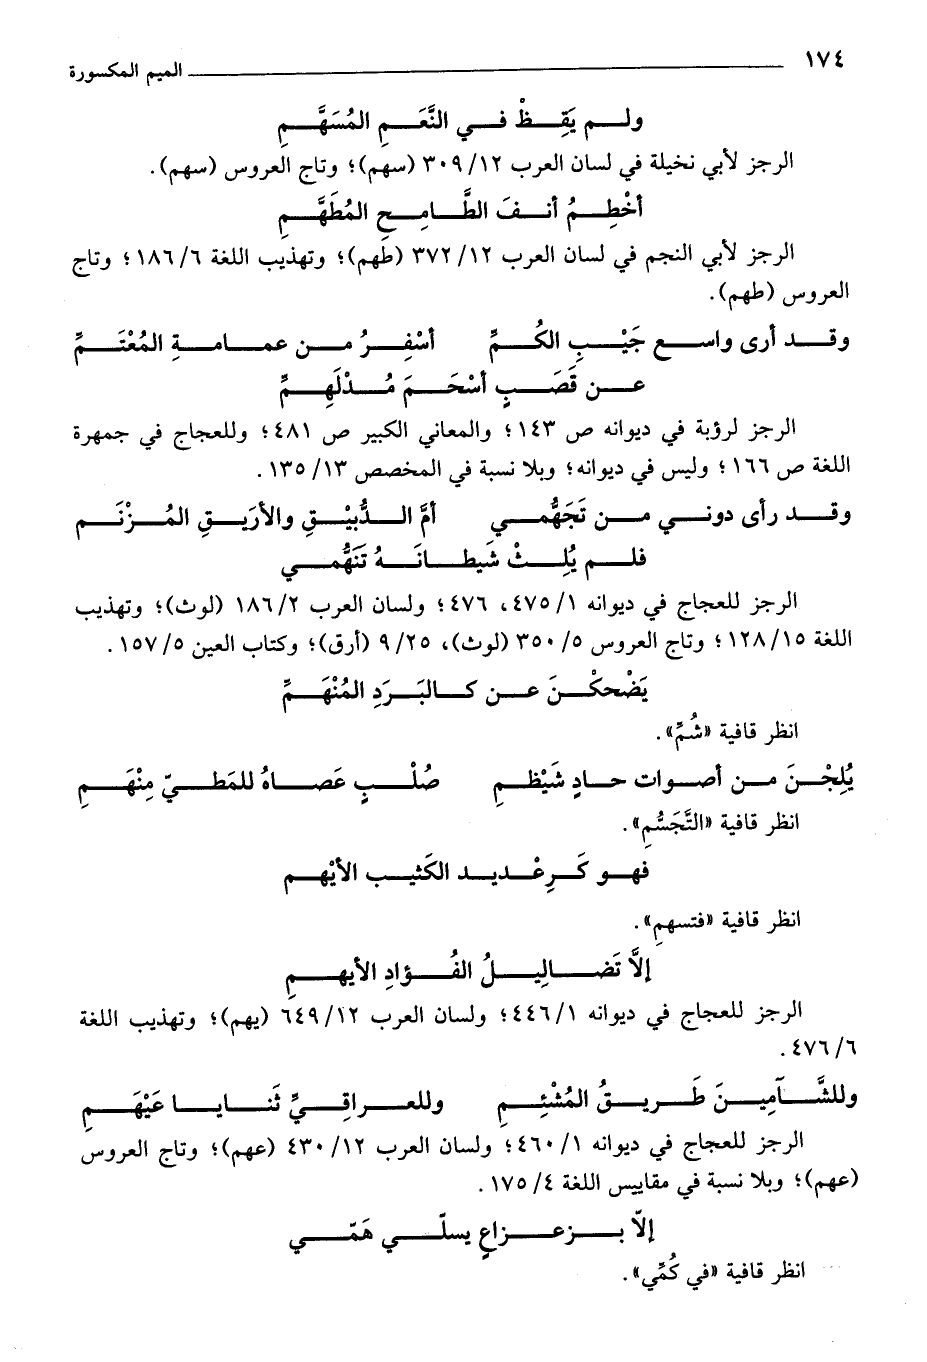 ١٧٤ الميم المكسورة
ولم يَقِظْ في النَّعَمِ المُسَهَّمِ
الرجز لأبي نخيلة في لسان العرب ٣٠٩/١٢ (سهم)؛ وتاج العروس (سهم).
أخْطِمُ أنفَ الطَّامِحِ المُطَهَّمِ
الرجز لأبي النجم في لسان العرب ٣٧٢/١٢ (طهم)؛ وتهذيب اللغة ١٨٦/٦؛ وتاج
العروس (طهم).
وقد أرى واسع جَيْبِ الكُمِّ أسْفِرُ من عمامةِ المُعْتَمِّ
عن قَصَبٍ أسْحَمَ مُدْلَهِمِّ
الرجز لرؤبة في ديوانه ص ١٤٣؛ والمعاني الكبير ص ٤٨١؛ وللعجاج في جمهرة
اللغة ص ١٦٦؛ وليس في ديوانه؛ وبلا نسبة في المخصص ١٣٥/١٣.
وقد رأى دوني من تَجَهُّمي أمَّ الدُّبيْقِ والأرَيقِ المُزْنَمِ
فلم يُلِثْ شَيطانَهُ تَنَهُّمي
الرجز للعجاج في ديوانه ٤٧٥/١، ٤٧٦؛ ولسان العرب ١٨٦/٢ (لوث)؛ وتهذيب
اللغة ١٢٨/١٥؛ وتاج العروس ٣٥٠/٥ (لوث)، ٩/٢٥ (أرق)؛ وكتاب العين ١٥٧/٥.
يَضْحكْنَ عن كالبَرَدِ المُنْهَمِّ
انظر قافية «شُمِّ».
يُلِجْنَ من أصوات حادٍ شَيْظمِ صُلْبٍ عَصاهُ للمَطيّ مِنْهَمِ
انظر قافية «التَّجَسُّمِ».
فهو كَرِعْديد الكَثيب الأيْهمِ
انظر قافية «فتسهمِ».
إلاَّ تَضاليلُ الفُؤادِ الأيهمِ
الرجز للعجاج في ديوانه ٤٤٦/١؛ ولسان العرب ٦٤٩/١٢ (يهم)؛ وتهذيب اللغة
٤٧٦/٦.
وللشَّآمِينَ طَريقُ المُشْئِمِ وللعراقِيِّ ثَنايا عَيْهَمِ
الرجز للعجاج في ديوانه ٤٦٠/١؛ ولسان العرب ٤٣٠/١٢ (عهم)؛ وتاج العروس
(عهم)؛ وبلا نسبة في مقاييس اللغة ١٧٥/٤.
إلاّ بزعزاعٍ يسلّي هَمّي
انظر قافية «في كُمِّي».